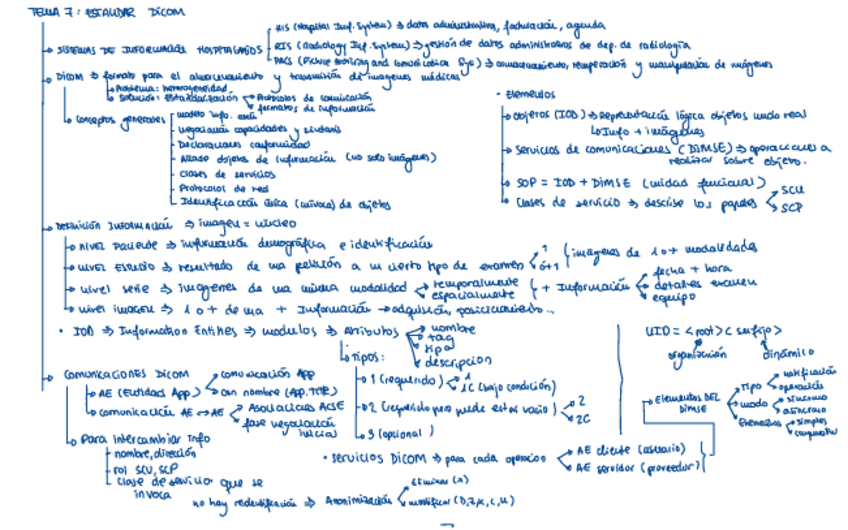 TEMA 7: ESTÁNDAR DICOM
HIS (Hospital Inf. System) ⇒ datos administrativos, facturación, agenda
SISTEMAS DE INFORMACIÓN HOSPITALARIOS
RIS (Radiology Inf. System) ⇒ gestión de datos administrativos de dep. de radiología
PACS (Picture Archiving and Comunication Sys) ⇒ almacenamiento, recuperación y manipulación de imágenes
DICOM ⇒ formato para el almacenamiento y transmisión de imágenes médicas
Problema: heterogeneidad
Solución: Estandarización
Protocolos de comunicación
formatos de información
Conceptos generales
modelo info.
negociación capacidades y
Declaraciones conformidad
objetos de información (no solo imágenes)
clases de servicios
Protocolos de red
Identificación única (unívoca) de objetos
• Elementos
Objetos (IOD) ⇒ Representación lógica objetos mundo real
Info + imágenes
Servicios de comunicaciones (DIMSE) ⇒ operaciones a
realizar sobre objeto.
SOP = IOD + DIMSE (unidad funcional)
Clases de servicio ⇒ describe los papeles
SCU
SCP
DEFINICIÓN INFORMACIÓN ⇒ imagen = núcleo
NIVEL PACIENTE ⇒ información demográfica e identificación
NIVEL ESTUDIO ⇒ resultado de una petición a un cierto tipo de examen
1
ó+1
imágenes de 1 o + modalidades
nivel serie ⇒ imágenes de una misma modalidad
temporalmente
espacialmente
+ Información
fecha + hora
detalles examen
equipo
nivel imagen ⇒ 1 o + de una + Información → adquisición, posicionamiento...
• IOD ⇒ Information Entities ⇒ modulos ⇒ Atributos
nombre
tag
tipo
descripcion
tipos:
1 (requerido)
1
1C (bajo condición)
2 (requerido pero puede estar vacio)
2
2C
3 (opcional)
UID = <root><sufijo>
organización
dinámico
COMUNICACIONES DICOM
AE (Entidad App)
comunicación App
con nombre (APP. TITLE)
comunicación AE → AE
Asociaciones ACSE
fase negociación
inicial
Para intercambiar info
nombre, dirección
rol SCU, SCP
clase de servicio que se
invoca
Elementos DEL
DIMSE
Tipo
notificación
operación
modo
síncrono
asíncrono
Elementos
simples
compuestos
• Servicios DICOM ⇒ para cada operación
AE cliente (usuario)
AE servidor (proveedor)
no hay reidentificación ⇒ Anonimización
eliminar (X)
modificar (D, Z, K, C, U)